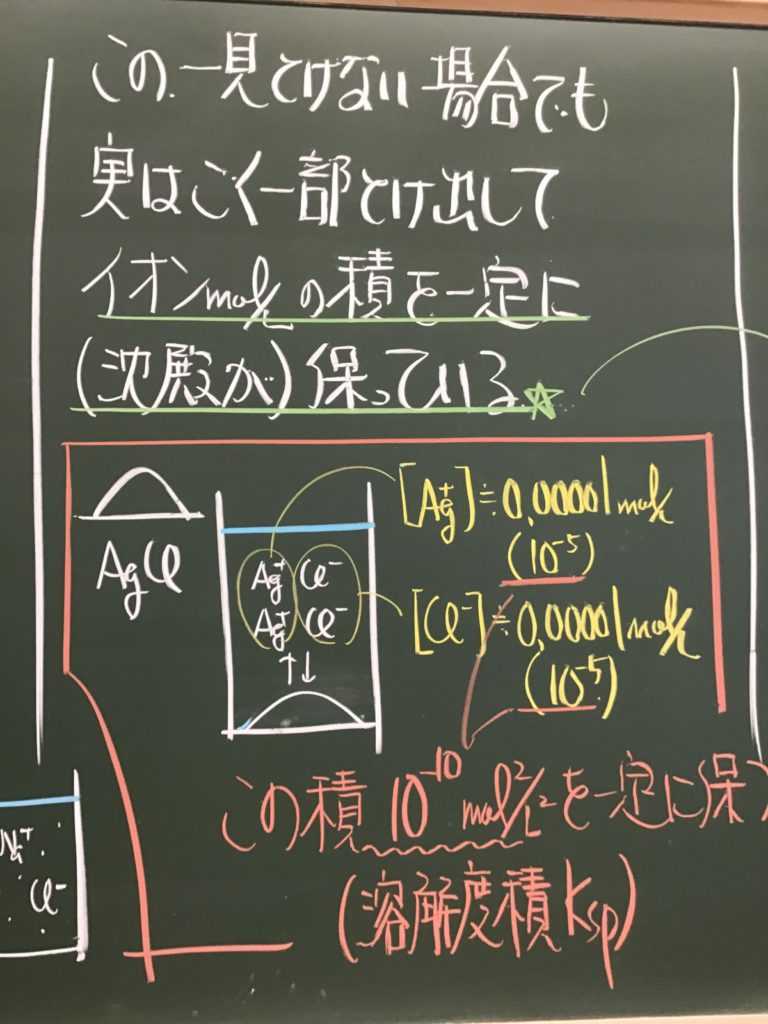 この一見とけない場合でも
実はごく一部とけ出して
イオンmol/Lの積を一定に
(沈殿が)保っている☆
AgCl
Ag⁺ Cl⁻
Ag⁺ Cl⁻
↑↓
[Ag⁺]≒0.00001mol/L
(10⁻⁵)
[Cl⁻]≒0.00001mol/L
(10⁻⁵)
この積 10⁻¹⁰ mol²/L²を一定に保つ
(溶解度積Ksp)
Na⁺
Cl⁻